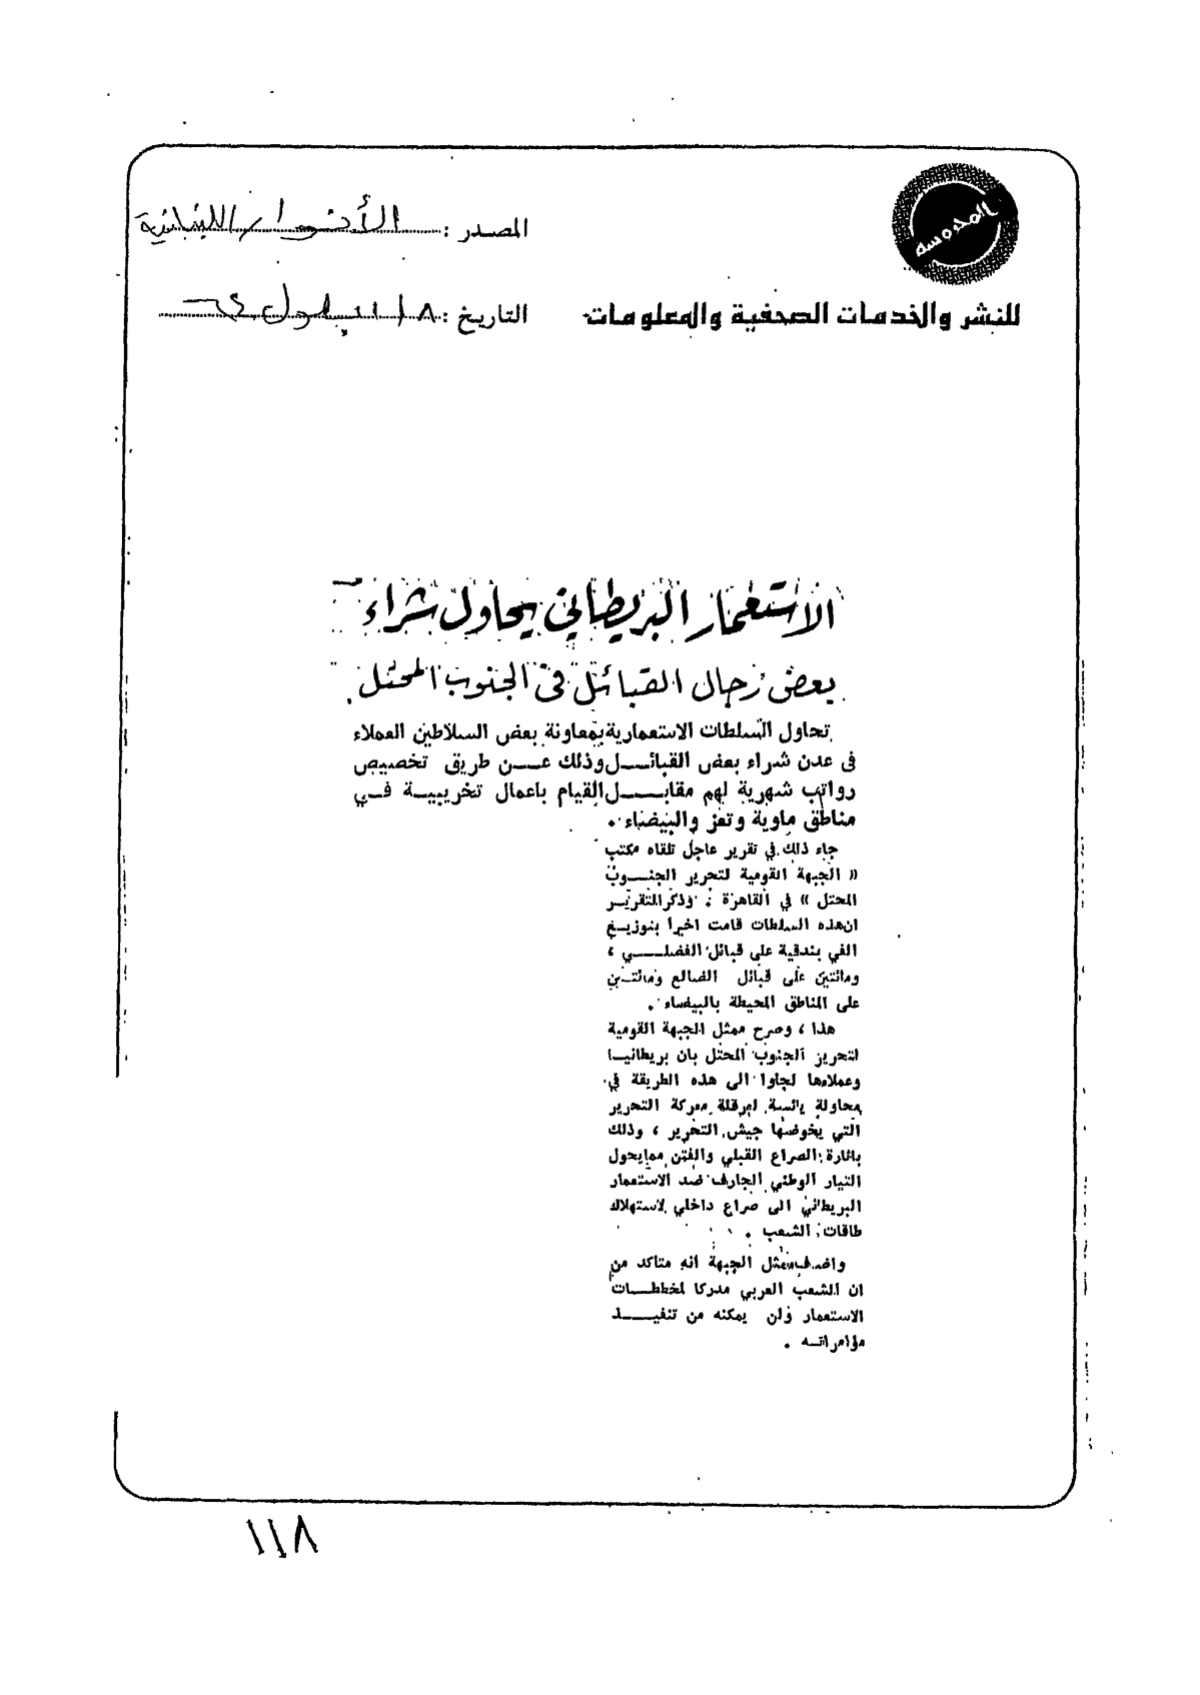 المحروسة
المصدر : الأنوار اللبنانية
للنشر والخدمات الصحفية والمعلومات
التاريخ :
الاستعمار البريطاني يحاول شراء
بعض رجال القبائل في الجنوب المحتل
تحاول السلطات الاستعمارية بمعاونة بعض السلاطين العملاء
فى عدن شراء بعض القبائل وذلك عن طريق تخصيص
رواتب شهرية لهم مقابل القيام باعمال تخريبية في
مناطق ماوية وتعز والبيضاء .
جاء ذلك في تقرير عاجل تلقاه مكتب
« الجبهة القومية لتحرير الجنوب
المحتل » في القاهرة . وذكر التقرير
ان هذه السلطات قامت اخيرا بتوزيع
الفي بندقية على قبائل الفضلي ،
ومائتين على قبائل الضالع ومائتين
على المناطق المحيطة بالبيضاء .
هذا ، وصرح ممثل الجبهة القومية
لتحرير الجنوب المحتل بان بريطانيا
وعملاءها لجاوا الى هذه الطريقة في
محاولة يائسة لعرقلة معركة التحرير
التي يخوضها جيش التحرير ، وذلك
باثارة الصراع القبلي والفتن مما يحول
التيار الوطني الجارف ضد الاستعمار
البريطاني الى صراع داخلي لاستهلاك
طاقات الشعب .
واضاف ممثل الجبهة انه متاكد من
ان الشعب العربي مدركا لمخططات
الاستعمار ولن يمكنه من تنفيذ
مؤامراته .
١١٨